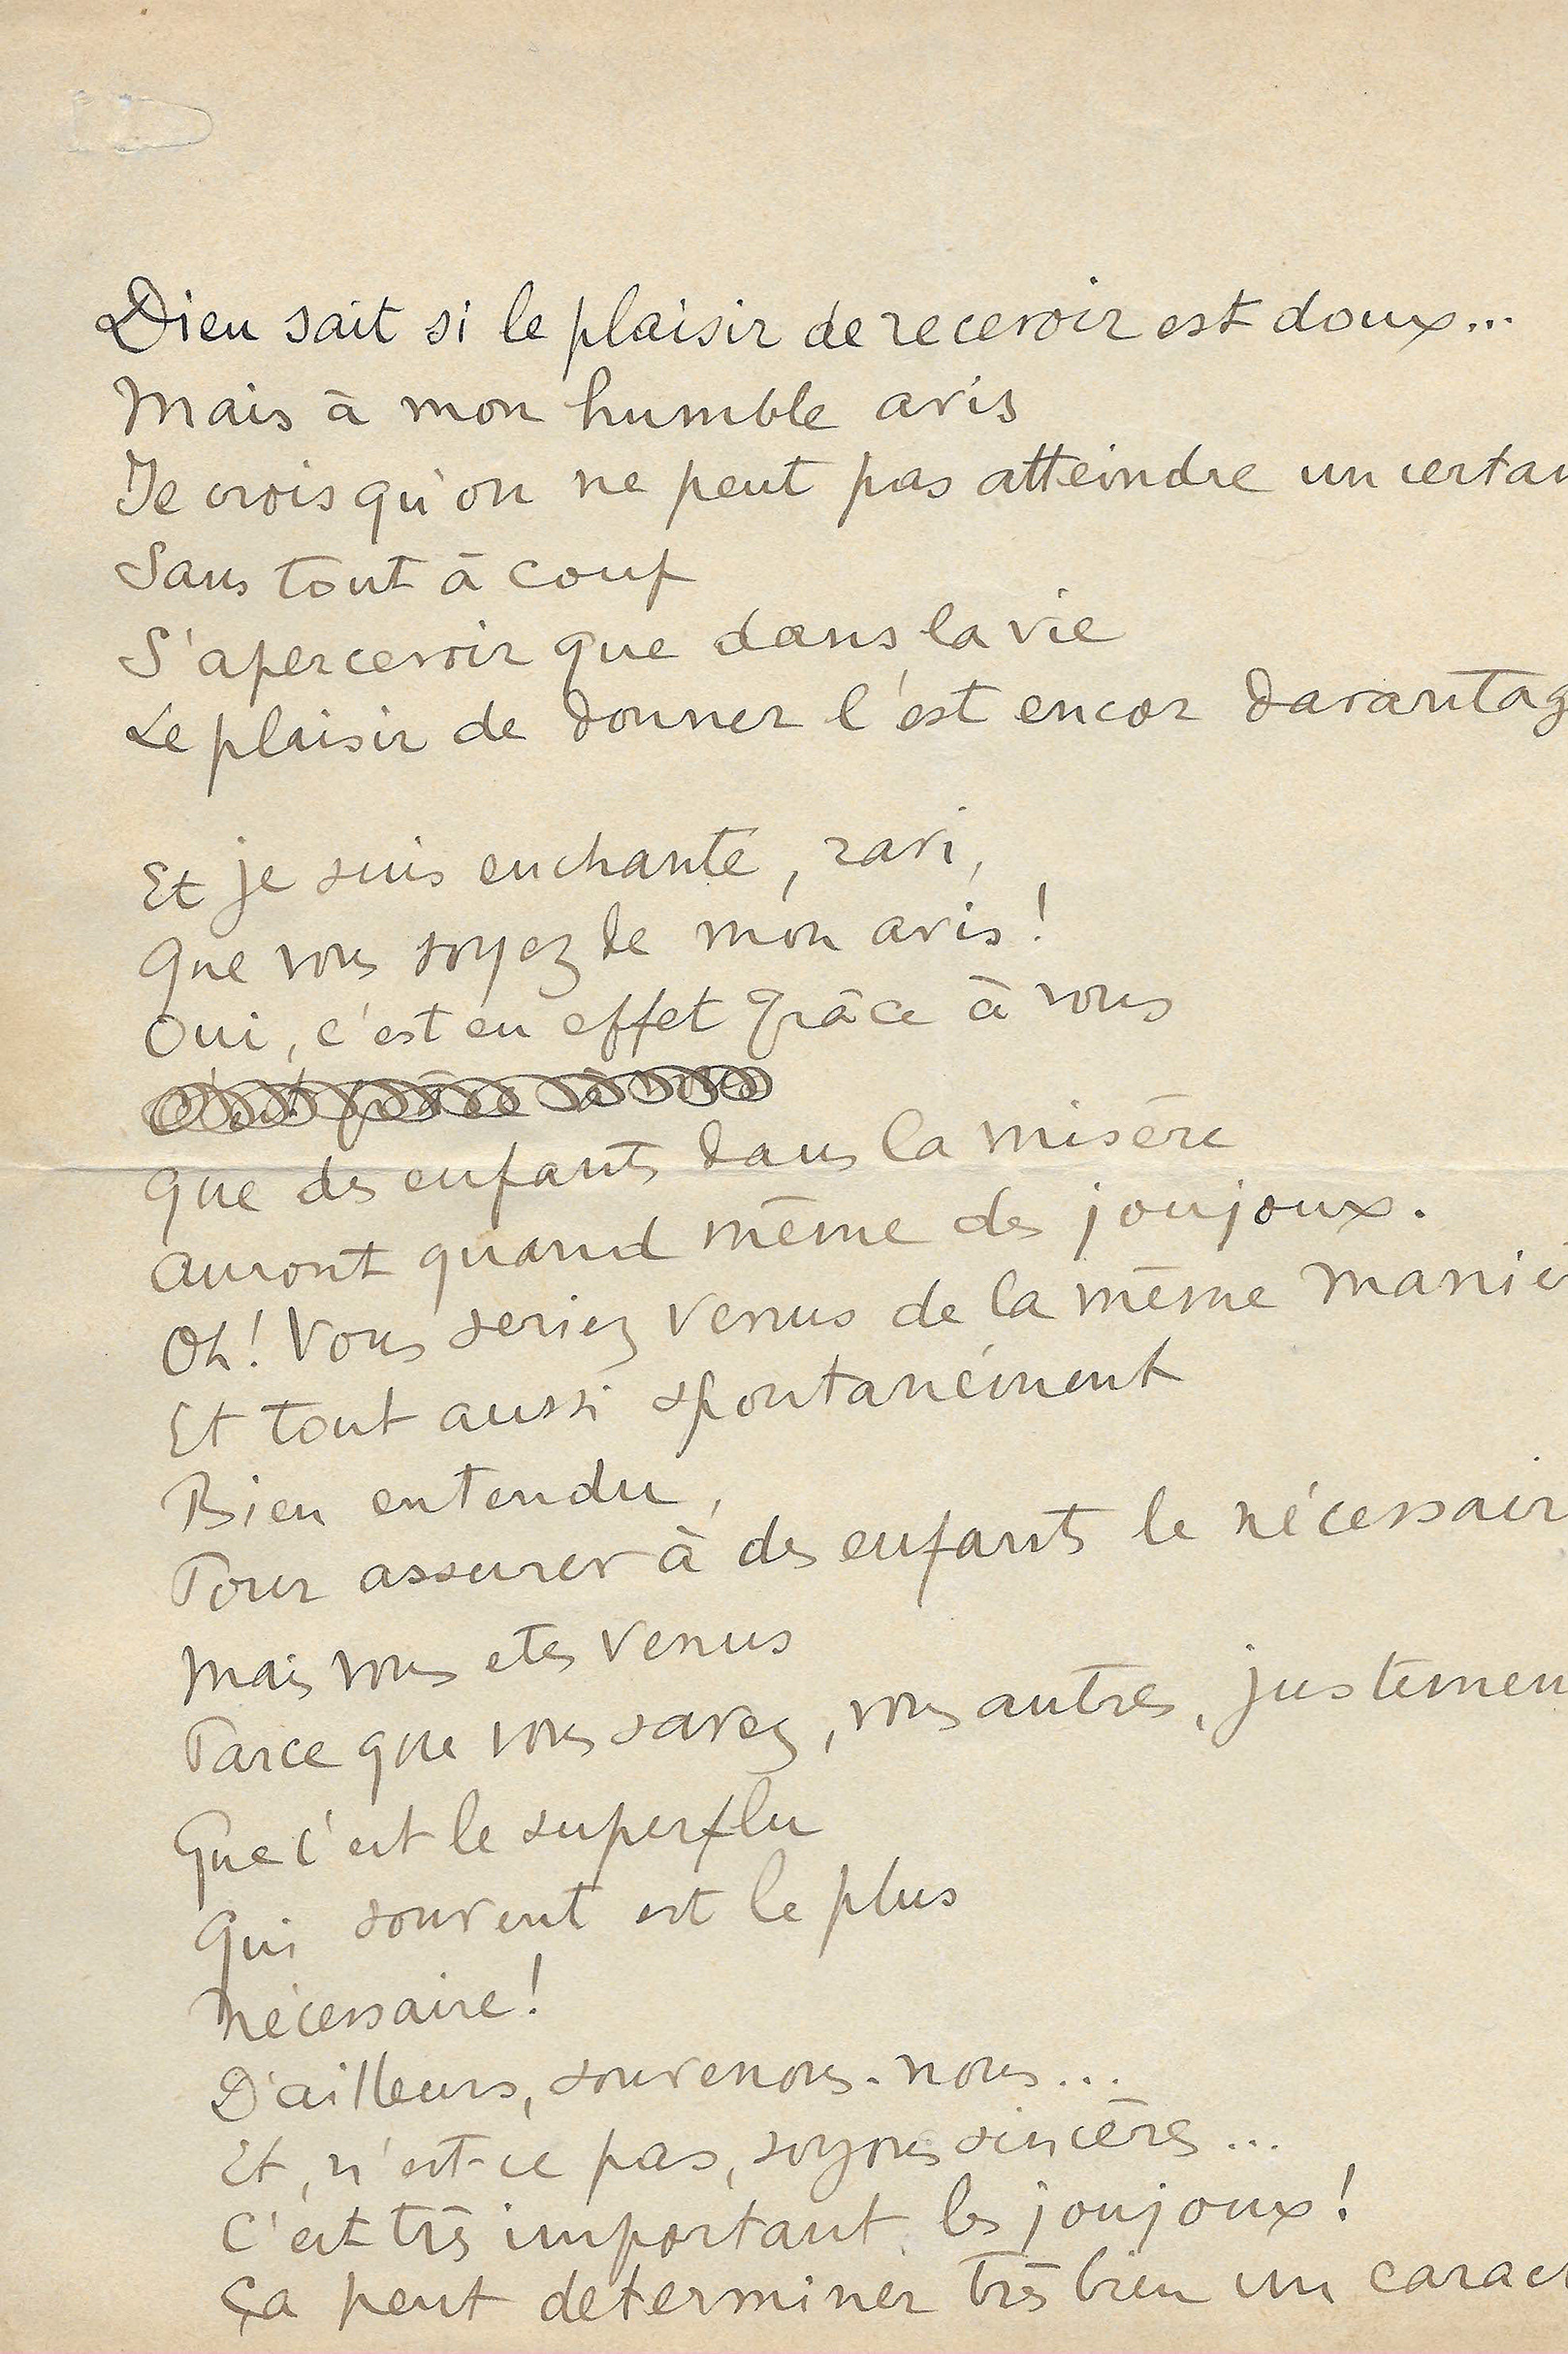 Dieu sait si le plaisir de recevoir est doux...
Mais à mon humble avis
Je crois qu'on ne peut pas atteindre un certai
Sans tout à coup
S'apercevoir que dans la vie
Le plaisir de donner l'est encor davantag
Et je suis enchanté, ravi,
Que vous soyez de mon avis !
Oui, c'est en effet grâce à vous
que des enfants dans la misère
auront quand même des joujoux.
Oh ! Vous seriez venus de la même maniè
Et tout aussi spontanément
Bien entendu,
Pour assurer à des enfants le nécessair
Mais vous etes venus
Parce que vous savez, vous autres, justemen
Que c'est le superflu
Qui souvent est le plus
Nécessaire !
D'ailleurs, souvenons-nous...
Et, n'est-ce pas, soyons sincères...
C'est très important, les joujoux !
Ça peut determiner très bien un carac